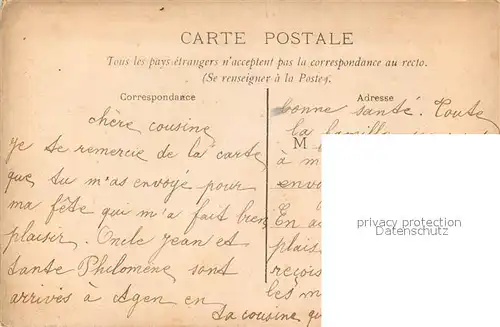 CARTE POSTALE
Tous les pays étrangers n'acceptent pas la correspondance au recto.
(Se renseigner à la Poste).
Correspondance
Adresse
chère cousine
Je te remercie de la carte
que tu m'as envoyé pour
ma fête qui m'a fait bien
plaisir. Oncle Jean et
tante Philomène sont
arrivés à Agen en
bonne santé. Toute
la famille
M
à m
envo
En a
plais
reçois
les m
ta cousine qu
privacy protection
Datenschutz